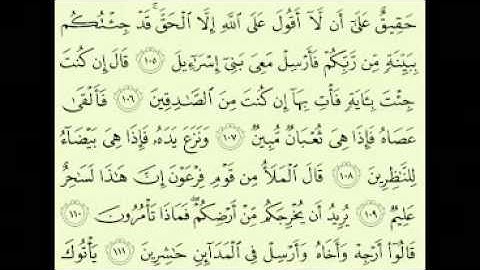 حَقِيقٌ عَلَىٰٓ أَن لَّآ أَقُولَ عَلَى ٱللَّهِ إِلَّا ٱلْحَقَّ ۚ قَدْ جِئْتُكُم
بِبَيِّنَةٍ مِّن رَّبِّكُمْ فَأَرْسِلْ مَعِىَ بَنِىٓ إِسْرَٰٓءِيلَ ١٠٥ قَالَ إِن كُنتَ
جِئْتَ بِـَٔايَةٍ فَأْتِ بِهَآ إِن كُنتَ مِنَ ٱلصَّـٰدِقِينَ ١٠٦ فَأَلْقَىٰ
عَصَاهُ فَإِذَا هِىَ ثُعْبَانٌ مُّبِينٌ ١٠٧ وَنَزَعَ يَدَهُۥ فَإِذَا هِىَ بَيْضَآءُ
لِلنَّـٰظِرِينَ ١٠٨ قَالَ ٱلْمَلَأُ مِن قَوْمِ فِرْعَوْنَ إِنَّ هَـٰذَا لَسَـٰحِرٌ
عَلِيمٌ ١٠٩ يُرِيدُ أَن يُخْرِجَكُم مِّنْ أَرْضِكُمْ ۖ فَمَاذَا تَأْمُرُونَ ١١٠
قَالُوٓا۟ أَرْجِهْ وَأَخَاهُ وَأَرْسِلْ فِى ٱلْمَدَآئِنِ حَـٰشِرِينَ ١١١ يَأْتُوكَ